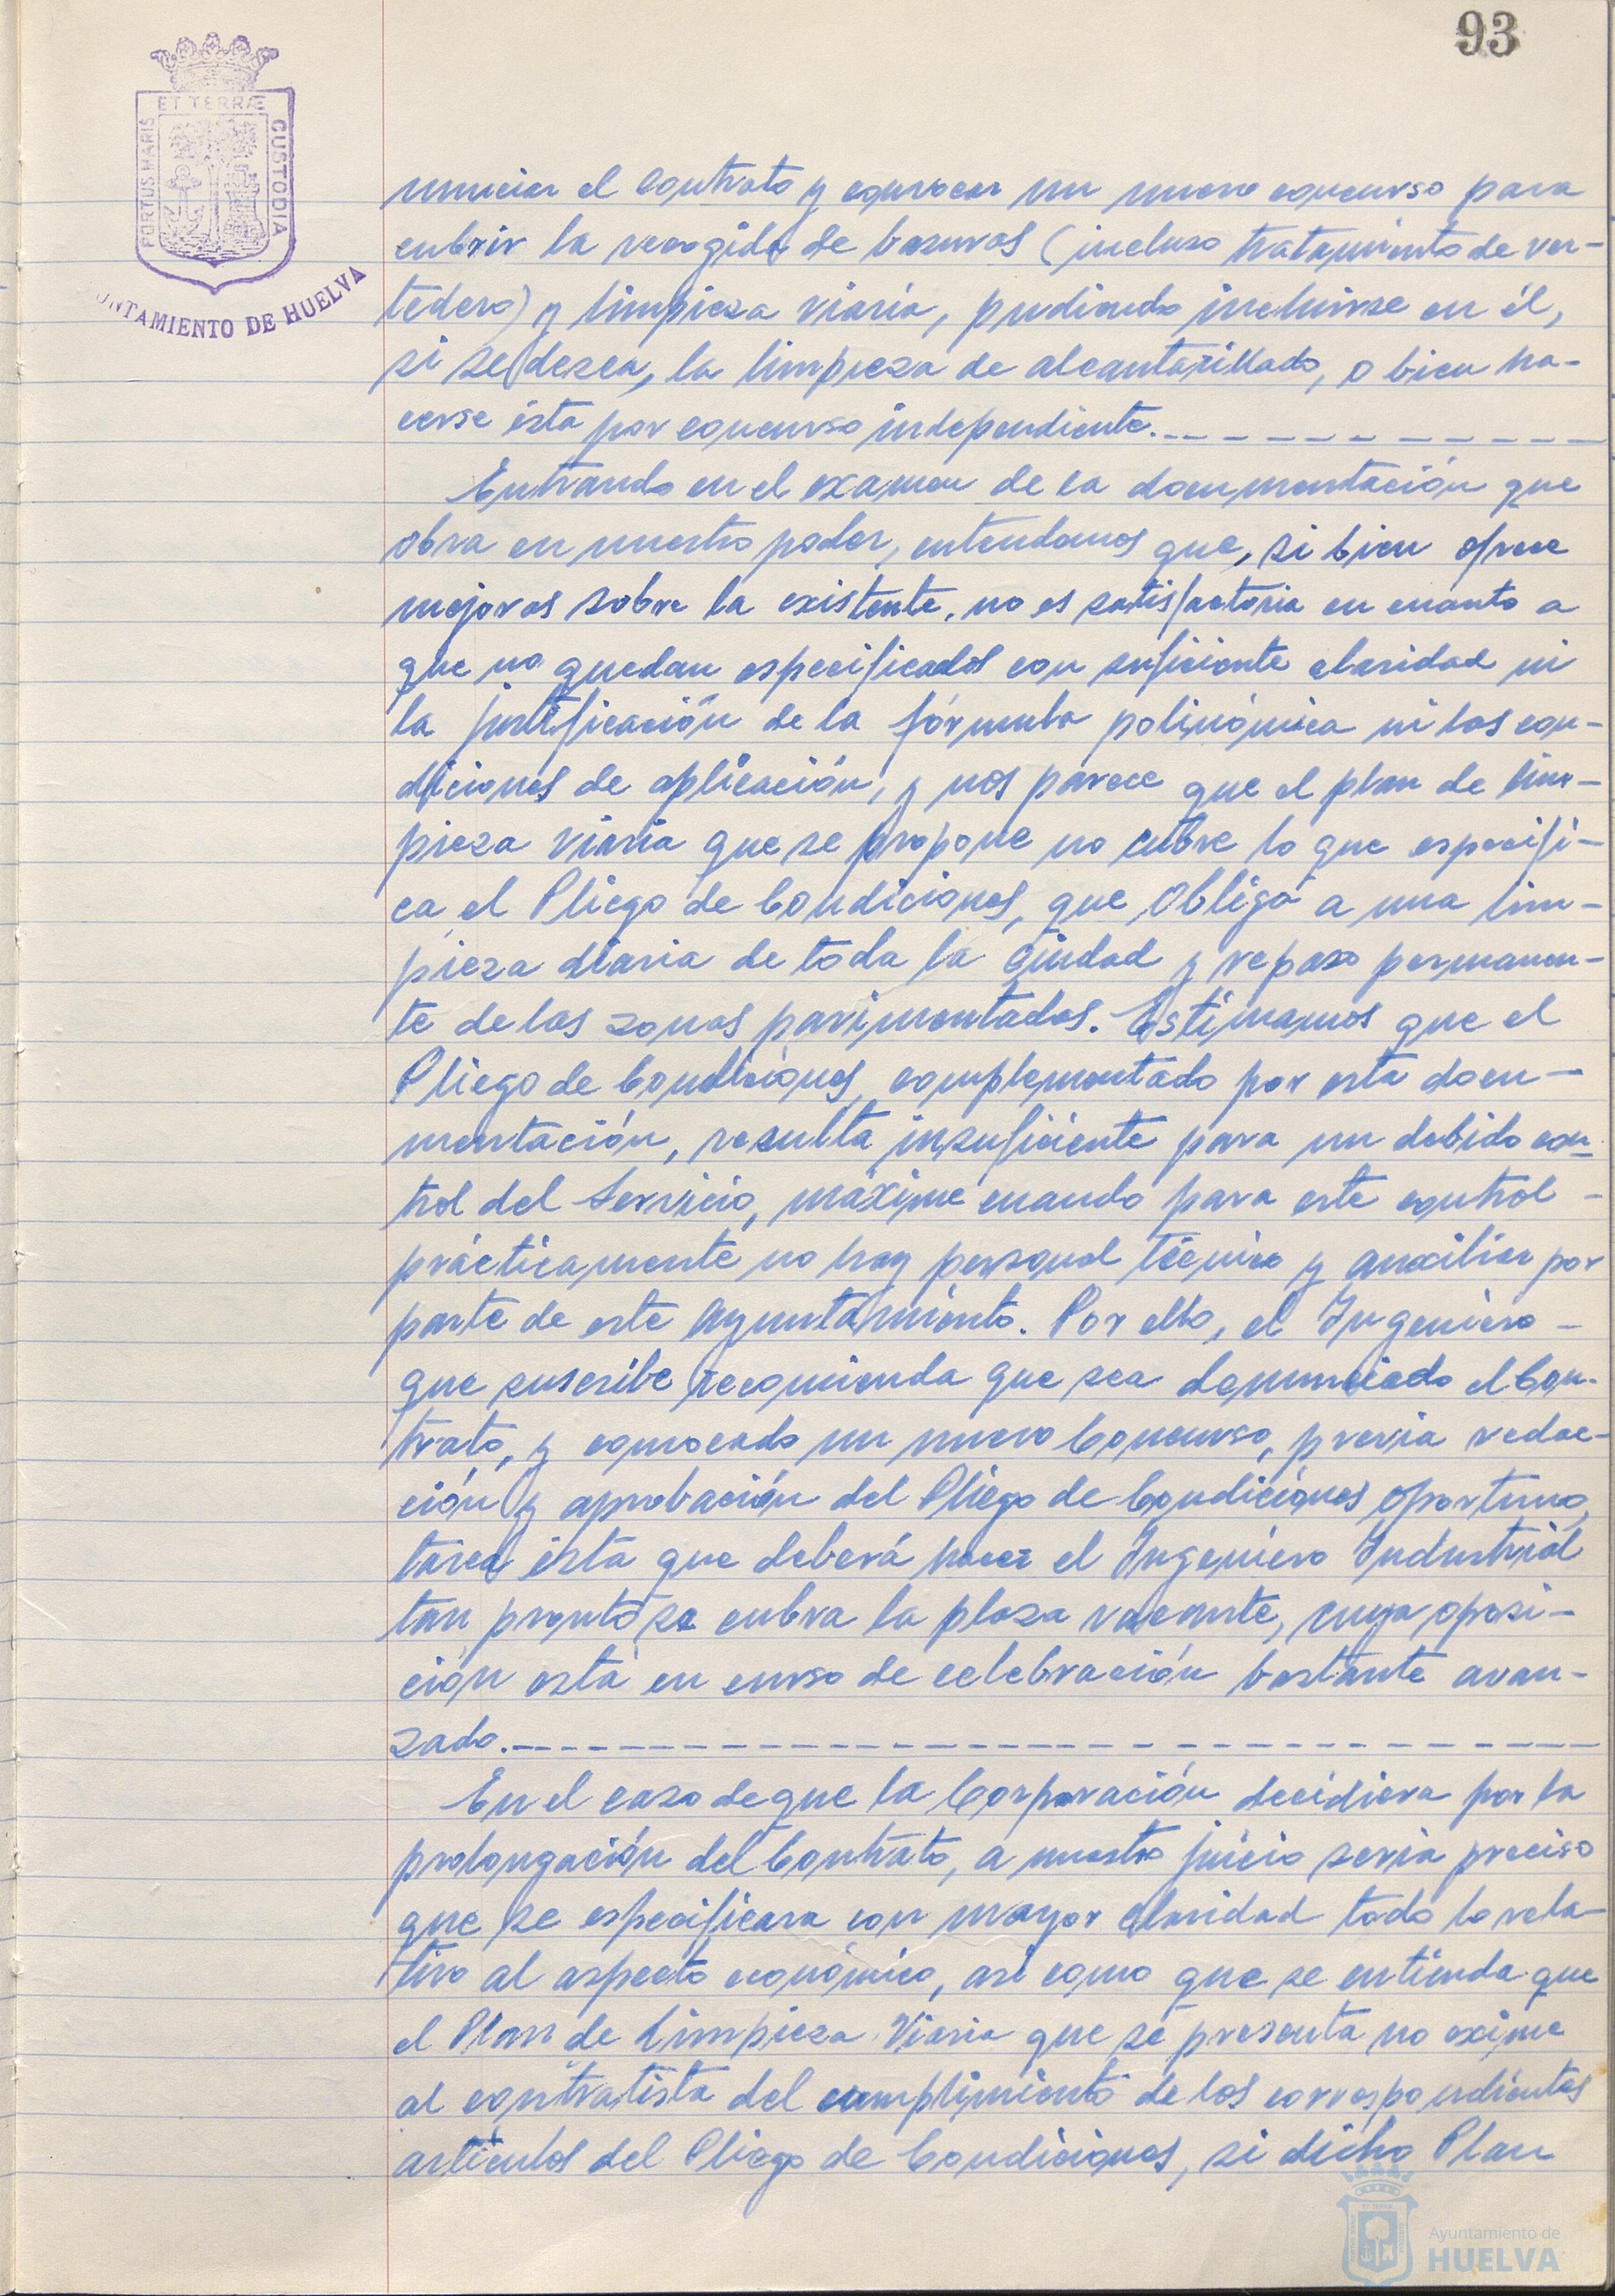 93
PORTUS MARIS
ET TERRÆ
CUSTODIA
UNTAMIENTO DE HUELVA
nunciar el contrato y convocar un nuevo concurso para
cubrir la recogida de basuras (incluso tratamiento de ver-
tedero) y limpieza viaria, pudiendo incluirse en él,
si se desea, la limpieza de alcantarillado, o bien ha-
cerse ésta por concurso independiente.
Entrando en el examen de la documentación que
obra en nuestro poder, entendemos que, si bien ofrece
mejoras sobre la existente, no es satisfactoria en cuanto a
que no quedan especificados con suficiente claridad ni
la justificación de la fórmula polinómica ni las con-
diciones de aplicación, y nos parece que el plan de lim-
pieza viaria que se propone no cubre lo que especifi-
ca el Pliego de Condiciones, que obliga a una lim-
pieza diaria de toda la ciudad y repaso permanen-
te de las zonas pavimentadas. Estimamos que el
Pliego de Condiciones, complementado por esta docu-
mentación, resulta insuficiente para un debido con-
trol del Servicio, máxime cuando para este control -
prácticamente no hay personal técnico y auxiliar por
parte de este Ayuntamiento. Por ello, el Ingeniero -
que suscribe recomienda que sea denunciado el Con-
trato, y convocado un nuevo Concurso, previa redac-
ción y aprobación del Pliego de Condiciones oportuno,
tarea ésta que deberá hacer el Ingeniero Industrial
tan pronto se cubra la plaza vacante, cuya oposi-
ción está en curso de celebración bastante avan-
zado.
En el caso de que la Corporación decidiera por la
prolongación del Contrato, a nuestro juicio sería preciso
que se especificara con mayor claridad todo lo rela-
tivo al aspecto económico, así como que se entienda que
el Plan de Limpieza Viaria que se presenta no exime
al contratista del cumplimiento de los correspondientes
artículos del Pliego de Condiciones, si dicho Plan
Ayuntamiento de
HUELVA